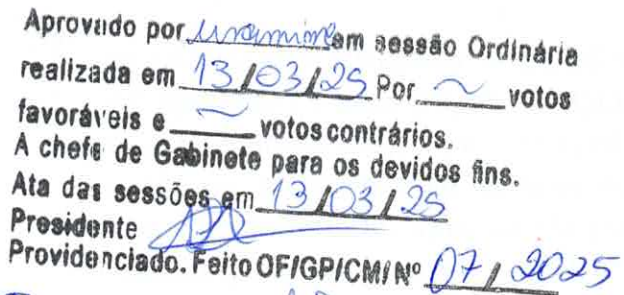 Aprovado por unanime em sessão Ordinária
realizada em 13/03/25 Por ~ votos
favoráveis e ~ votos contrários.
A chefe de Gabinete para os devidos fins.
Ata das sessões em 13/03/25
Presidente
Providenciado. Feito OF/GP/CM/ Nº 07/2025